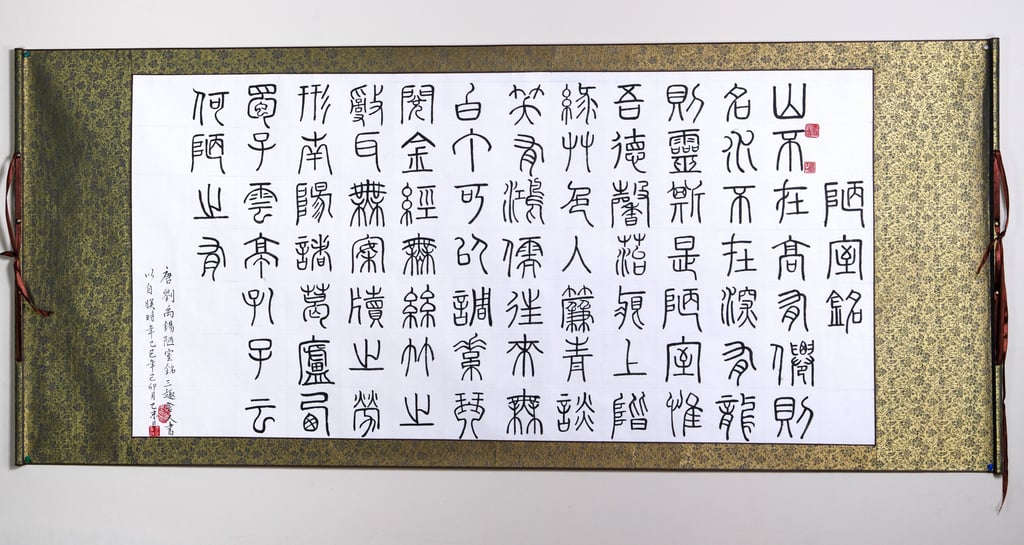 陋室銘
山不在高有僊則
名水不在深有龍
則靈斯是陋室惟
吾德馨菭痕上階
綠艸色入簾青談
笑有鴻儒往來無
白丁可以調素琴
閱金經無絲竹之
亂耳無案牘之勞
形南陽諸葛廬西
蜀子雲亭孔子云
何陋之有
唐劉禹錫陋室銘三趣人書
以自娛時年乙巳年己卯月